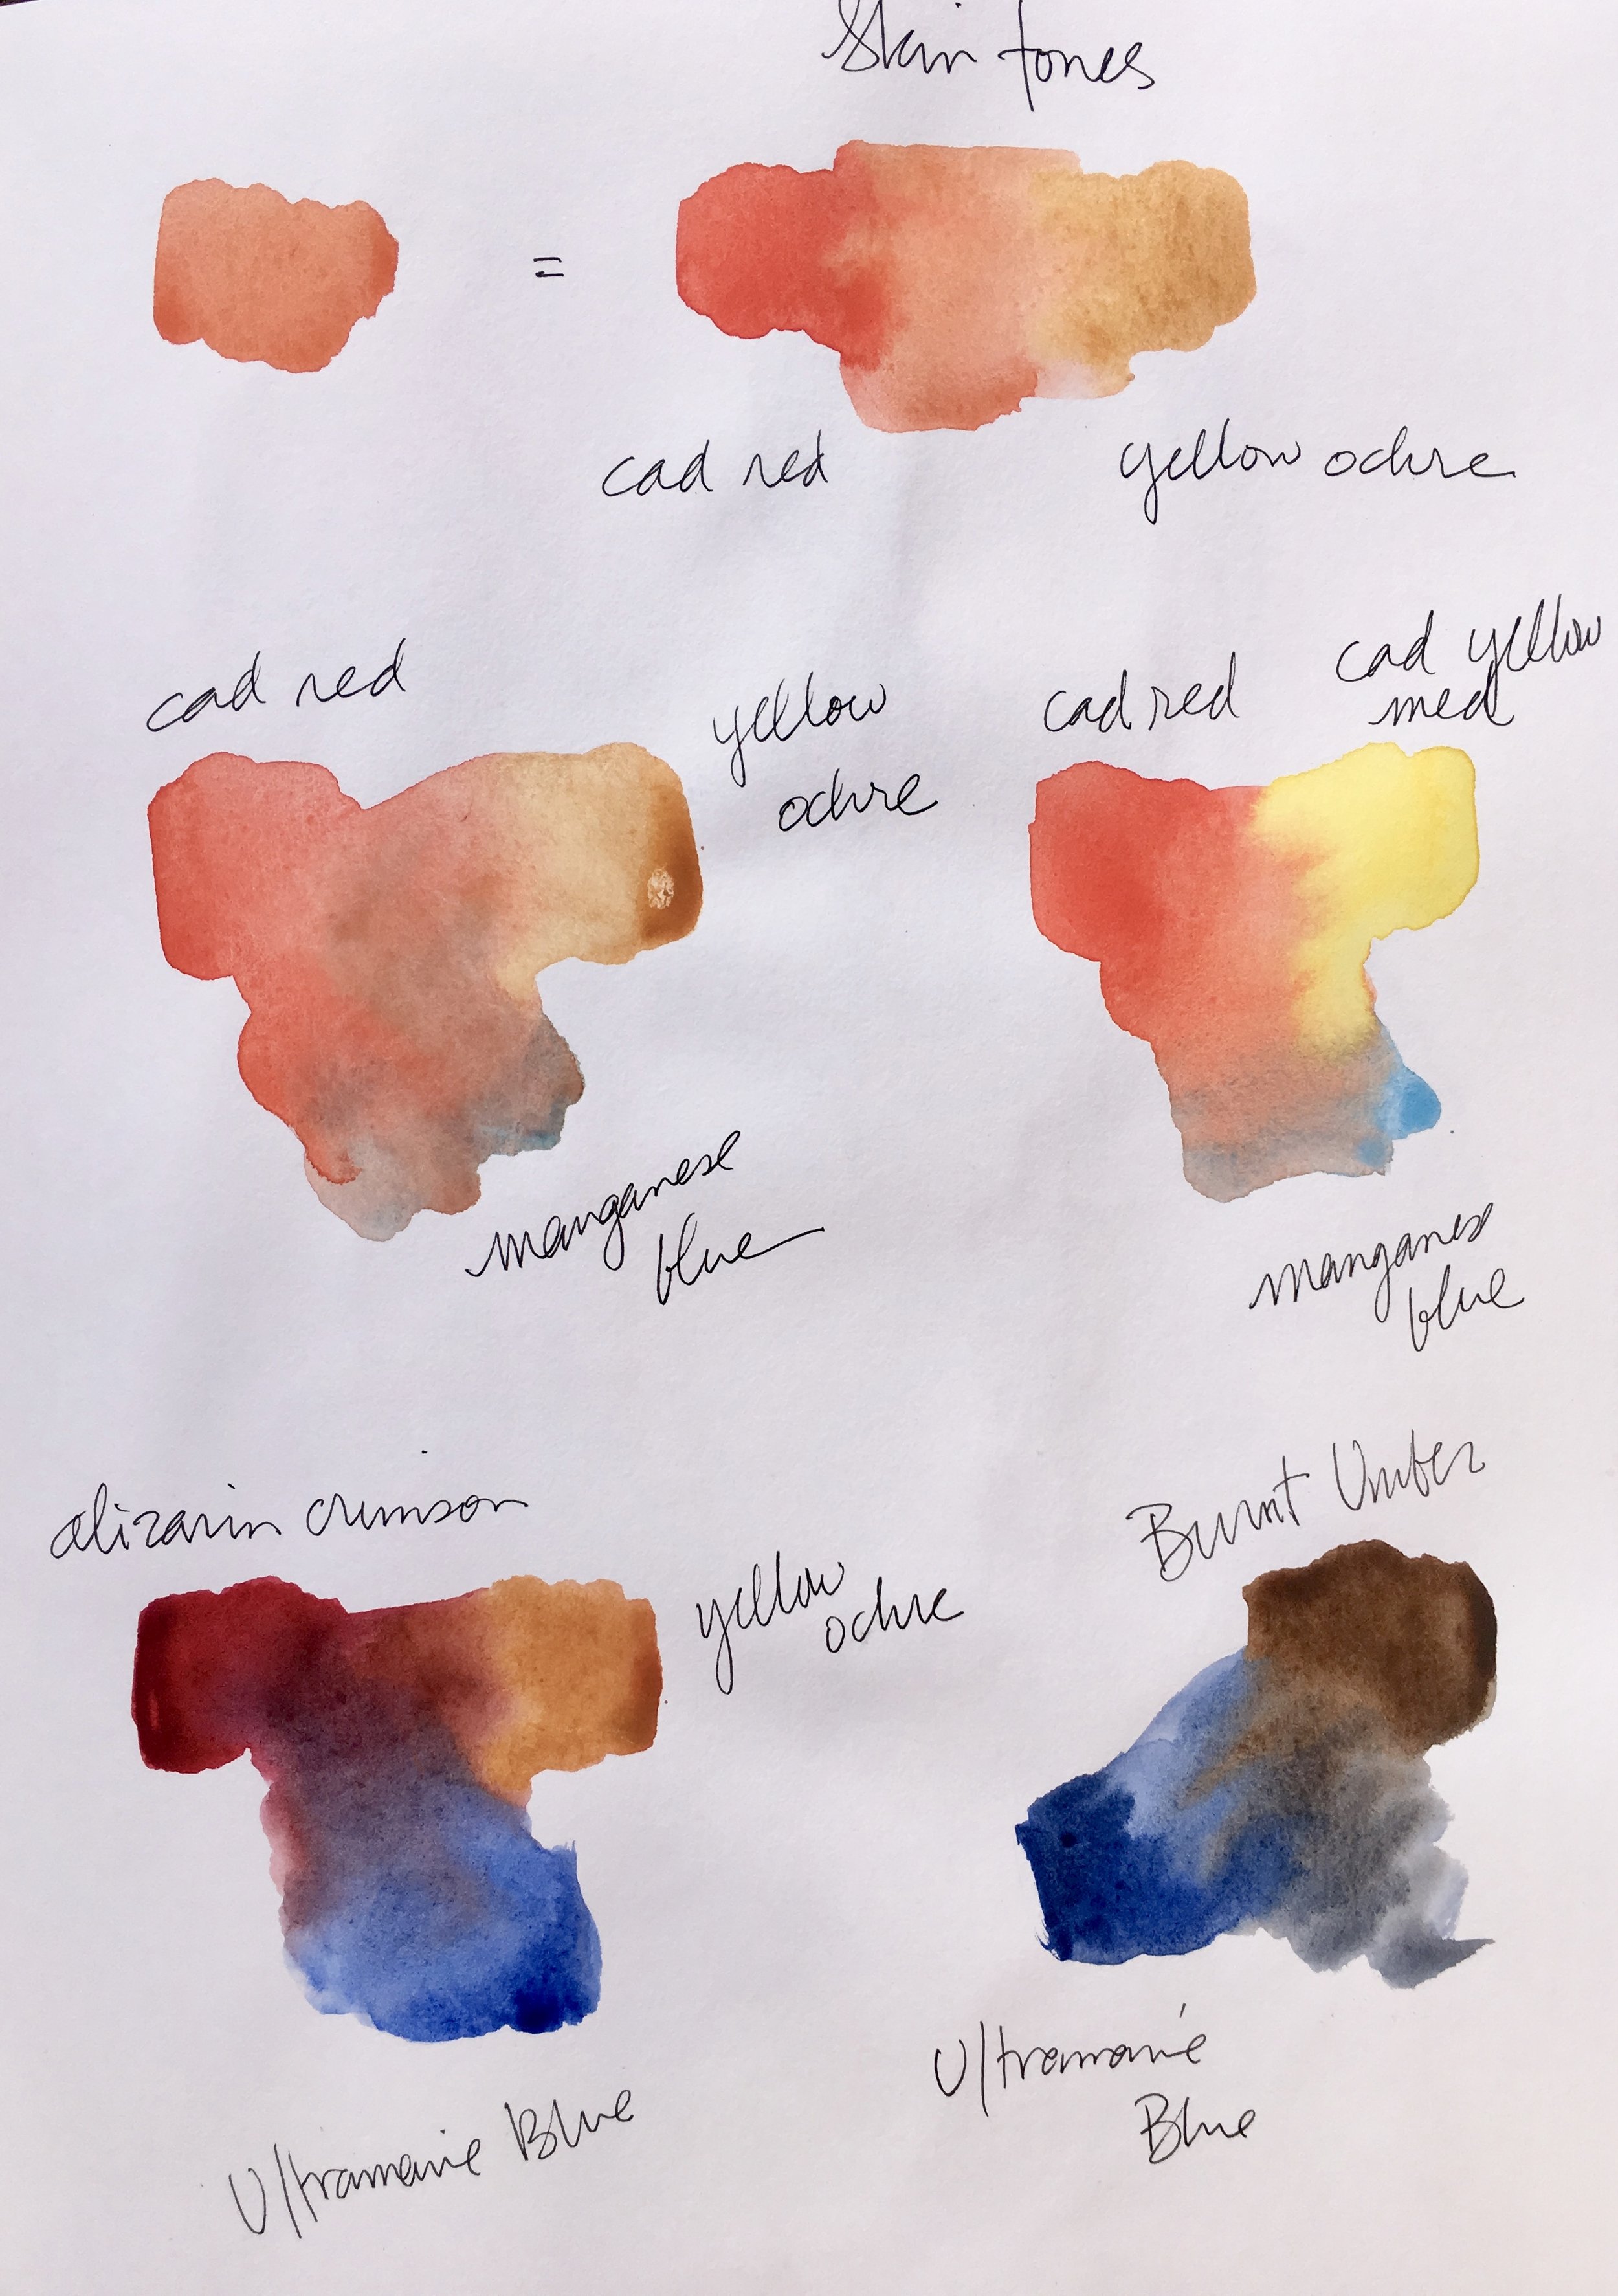 Skin tones
=
cad red
yellow ochre
cad red
yellow
ochre
cad red
cad yellow
med
manganese
blue
manganese
blue
alizarin crimson
yellow
ochre
Burnt Umber
Ultramarine Blue
Ultramarine
Blue